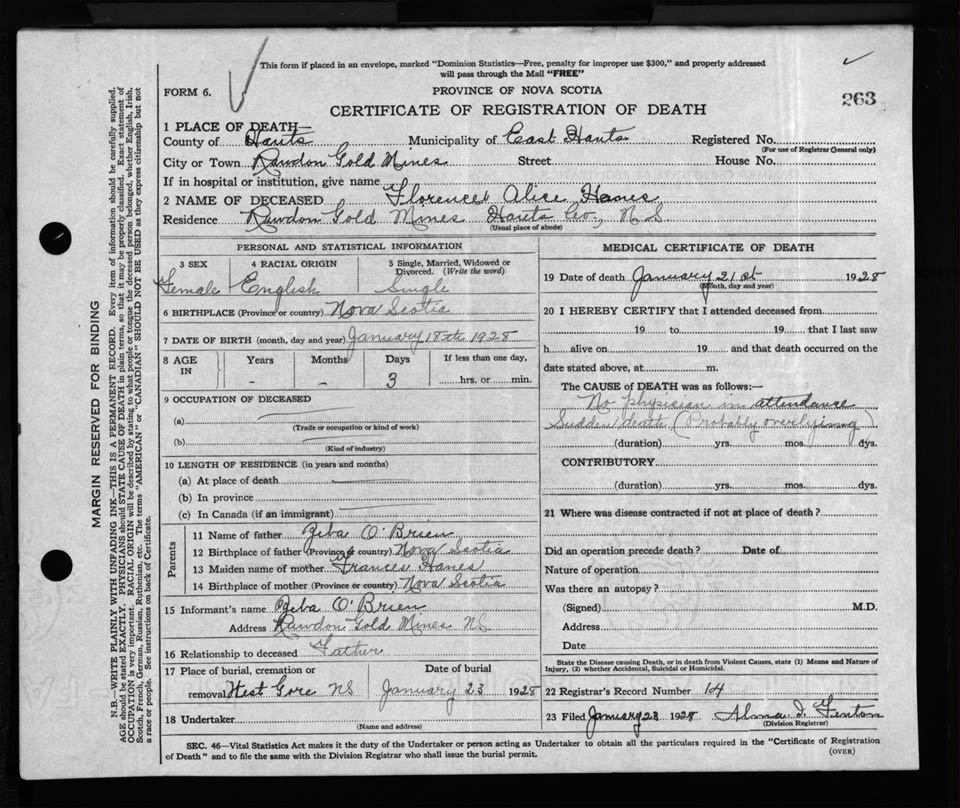 This form if placed in an envelope, marked "Dominion Statistics—Free, penalty for improper use $300," and properly addressed
will pass through the Mail "FREE"
FORM 6.
PROVINCE OF NOVA SCOTIA
263
CERTIFICATE OF REGISTRATION OF DEATH
1 PLACE OF DEATH
County of Hants Municipality of East Hants Registered No.
(For use of Registrar General only)
City or Town Rawdon Gold Mines Street House No.
If in hospital or institution, give name
2 NAME OF DECEASED Florence Alice Hanes
Residence Rawdon Gold Mines Hants Co., N S
(Usual place of abode)
PERSONAL AND STATISTICAL INFORMATION
3 SEX 4 RACIAL ORIGIN 5 Single, Married, Widowed or
Divorced. (Write the word)
Female English Single
6 BIRTHPLACE (Province or country) Nova Scotia
7 DATE OF BIRTH (month, day and year) January 18th 1928
8 AGE IN Years Months Days If less than one day,
- - 3 hrs. or min.
9 OCCUPATION OF DECEASED
(a)
(Trade or occupation or kind of work)
(b)
(Kind of industry)
10 LENGTH OF RESIDENCE (in years and months)
(a) At place of death
(b) In province
(c) In Canada (if an immigrant)
Parents
11 Name of father Ziba O'Brien
12 Birthplace of father (Province or country) Nova Scotia
13 Maiden name of mother Frances Hanes
14 Birthplace of mother (Province or country) Nova Scotia
15 Informant's name Ziba O'Brien
Address Rawdon Gold Mines NS
16 Relationship to deceased Father
17 Place of burial, cremation or Date of burial
removal West Gore NS January 23 1928
18 Undertaker
(Name and address)
MEDICAL CERTIFICATE OF DEATH
19 Date of death January 21st 1928
(Month, day and year)
20 I HEREBY CERTIFY that I attended deceased from
19 to 19 that I last saw
h alive on 19 and that death occurred on the
date stated above, at m.
The CAUSE of DEATH was as follows:—
No physician in attendance
Sudden death (Probably overlying
(duration) yrs. mos. dys.
CONTRIBUTORY
(duration) yrs. mos. dys.
21 Where was disease contracted if not at place of death?
Did an operation precede death? Date of
Nature of operation
Was there an autopsy?
(Signed) M.D.
Address
Date
State the Disease causing Death, or in death from Violent Causes, state (1) Means and Nature of
Injury, (2) whether Accidental, Suicidal or Homicidal.
22 Registrar's Record Number 14
23 Filed January 23 1928 Alma I. Fenton
(Division Registrar)
SEC. 46—Vital Statistics Act makes it the duty of the Undertaker or person acting as Undertaker to obtain all the particulars required in the "Certificate of Registration
of Death" and to file the same with the Division Registrar who shall issue the burial permit.
(OVER)
MARGIN RESERVED FOR BINDING
N.B.—WRITE PLAINLY WITH UNFADING INK—THIS IS A PERMANENT RECORD. Every item of information should be carefully supplied.
AGE should be stated EXACTLY. PHYSICIANS should STATE CAUSE OF DEATH in plain terms, so that it may be properly classified. Exact statement of
OCCUPATION is very important. RACIAL ORIGIN will be described by stating to what people or tongue the deceased person belonged, whether English, Irish,
Scotch, French, German, Russian, Ruthenian, etc. The terms "AMERICAN" or "CANADIAN" SHOULD NOT BE USED as they express citizenship but not
a race or people. See instructions on back of Certificate.